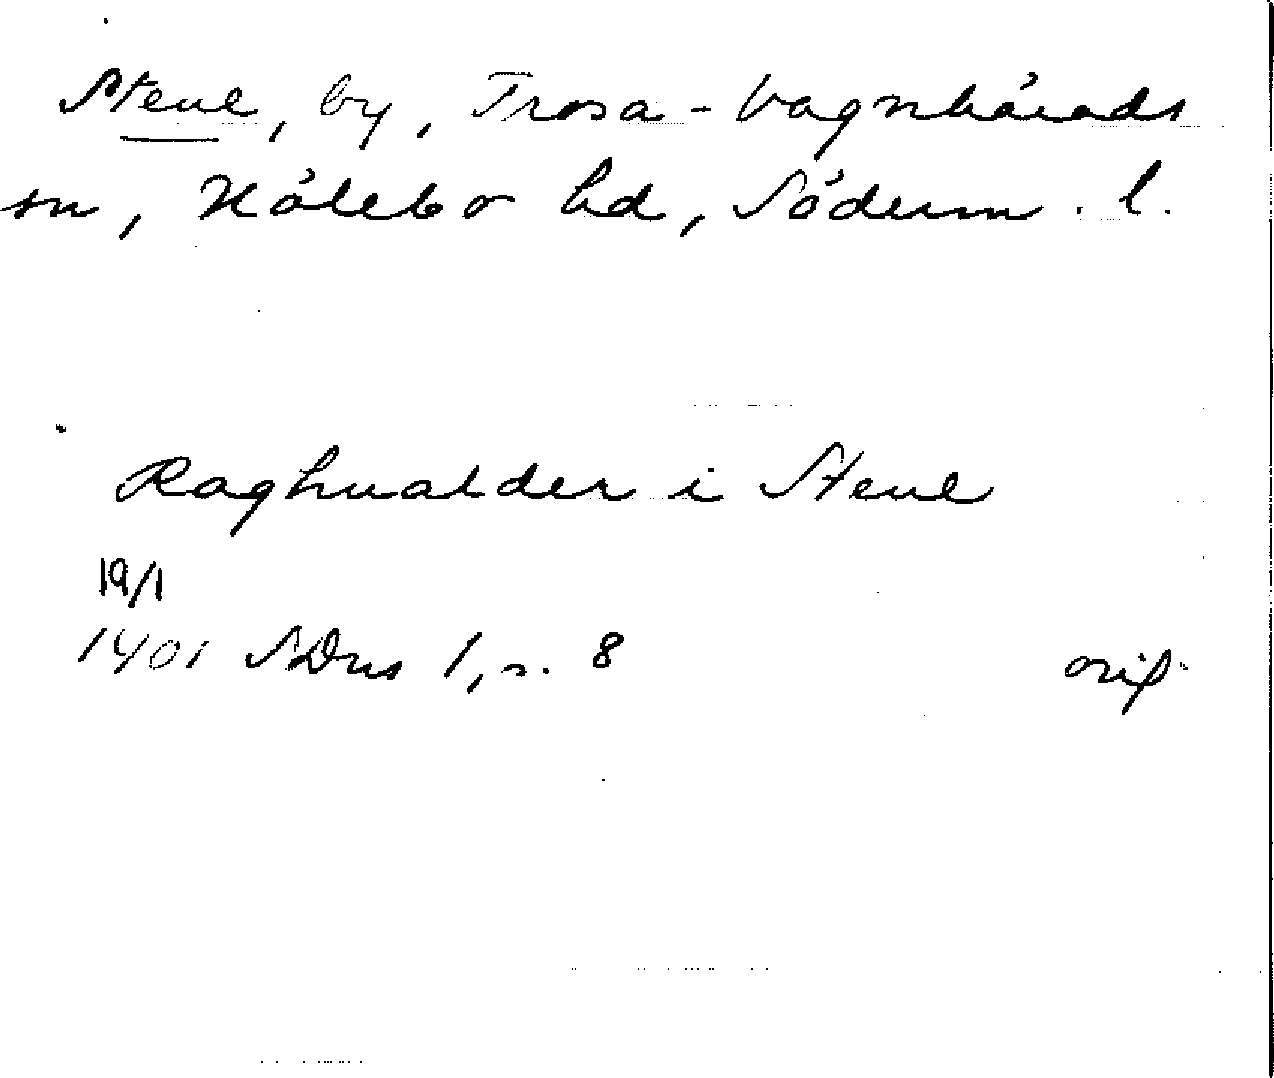 Stene, by, Trosa-Vagnhärads
sn, Hölebo hd, Söderm. l.
Raghualder i Stene
19/1
1401 SDns 1, s. 8
orig.